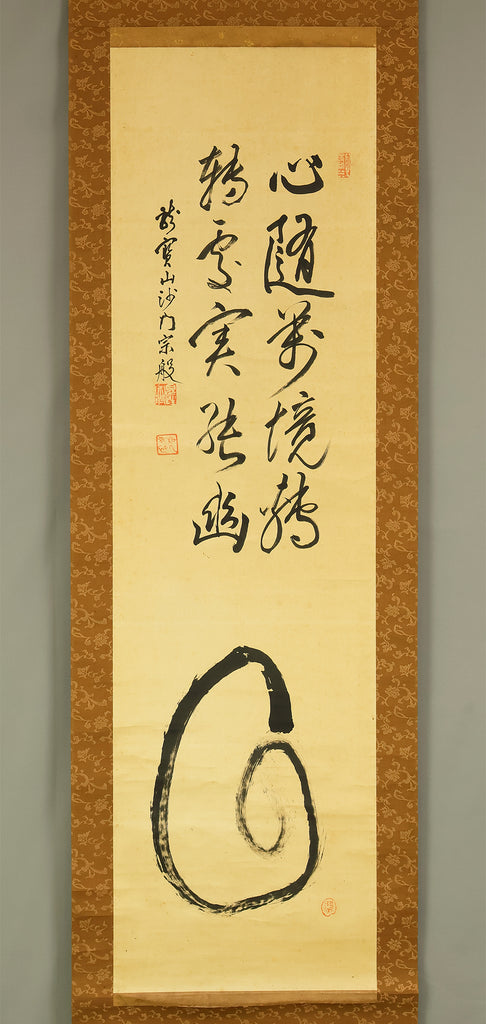 心隨萬境轉
轉處実能幽
龍寳山沙門宗般